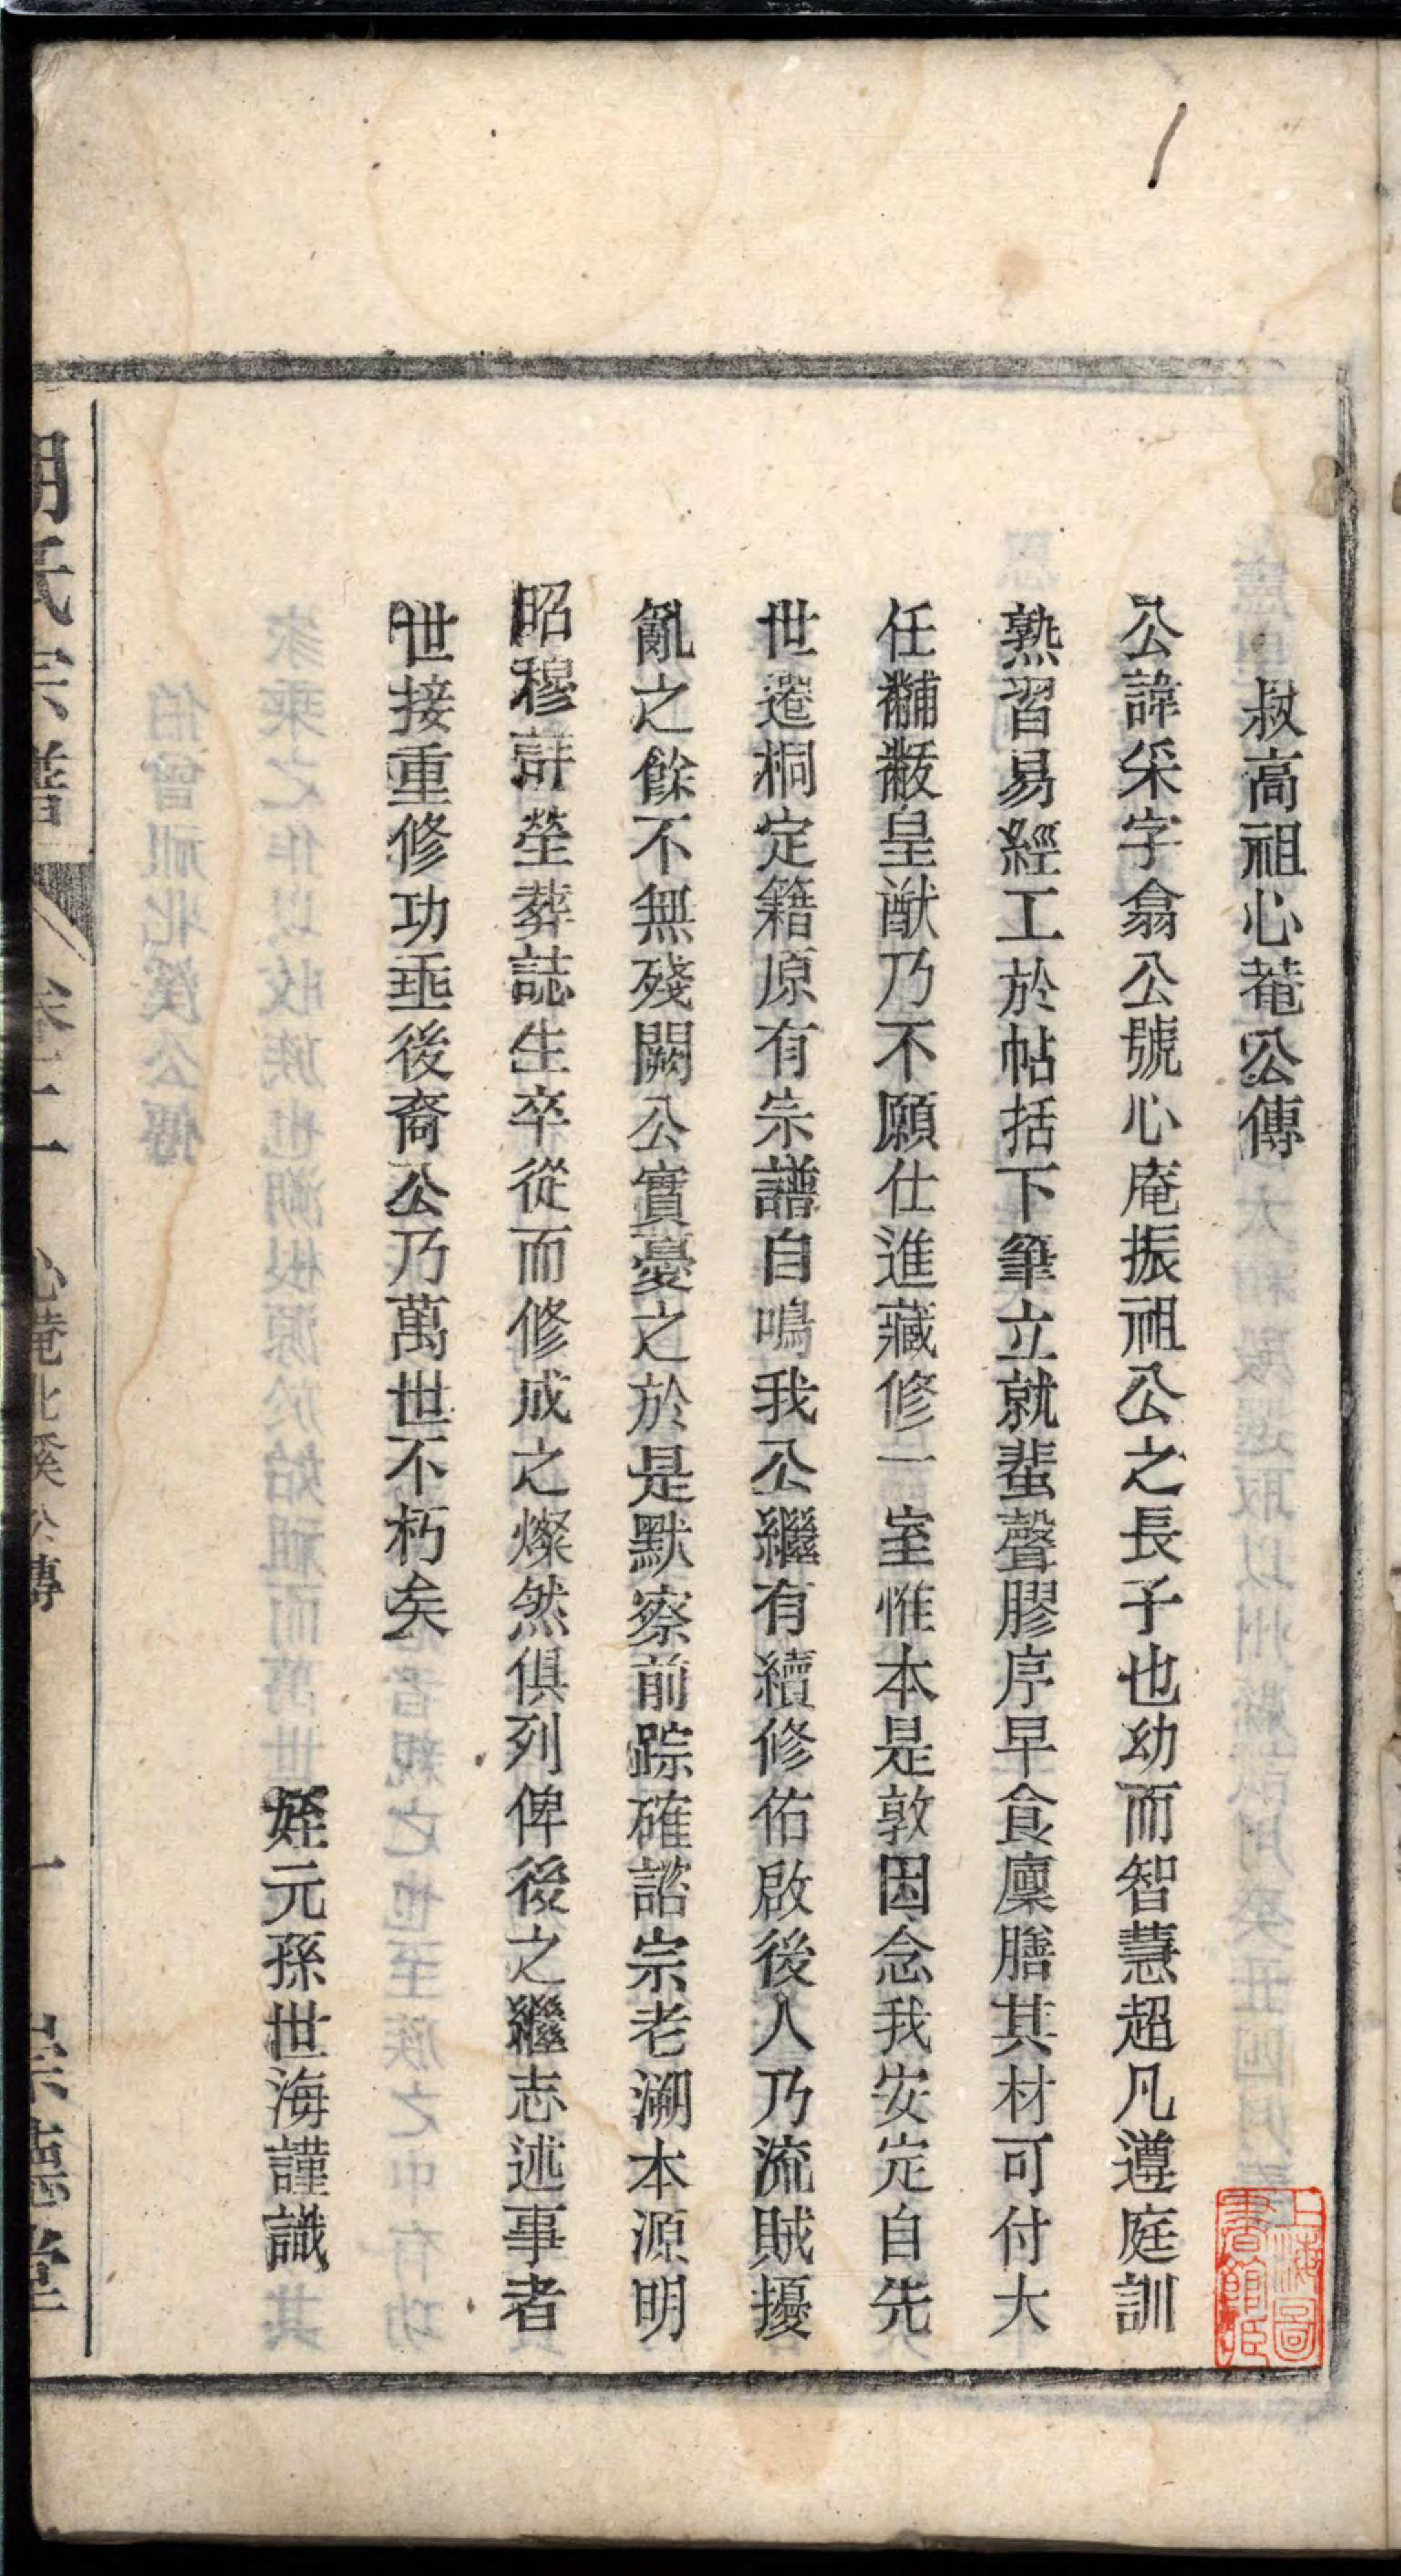 叔高祖心菴公傳
公諱采字翕公號心庵振祖公之長子也幼而智慧超凡遵庭訓
熟習易經工於帖括下筆立就蜚聲膠序早食廩膳其材可付大
任黼黻皇猷乃不願仕進藏修一室惟本是敦因念我安定自先
世遷桐定籍原有宗譜自鳴我公繼有續修佑啟後人乃流賊擾
亂之餘不無殘闕公實憂之於是默察前踪確諮宗老溯本源明
昭穆詳塋葬誌生卒從而修成之燦然俱列俾後之繼志述事者
世接重修功垂後裔公乃萬世不朽矣
姪元孫世海謹識
胡氏宗譜
卷十二
心菴北溪公傳
一
崇德堂
上海圖書館藏